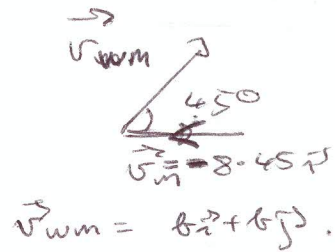 v⃗wm
45°
v⃗m = -8.45 i⃗
v⃗wm = b i⃗ + b j⃗.